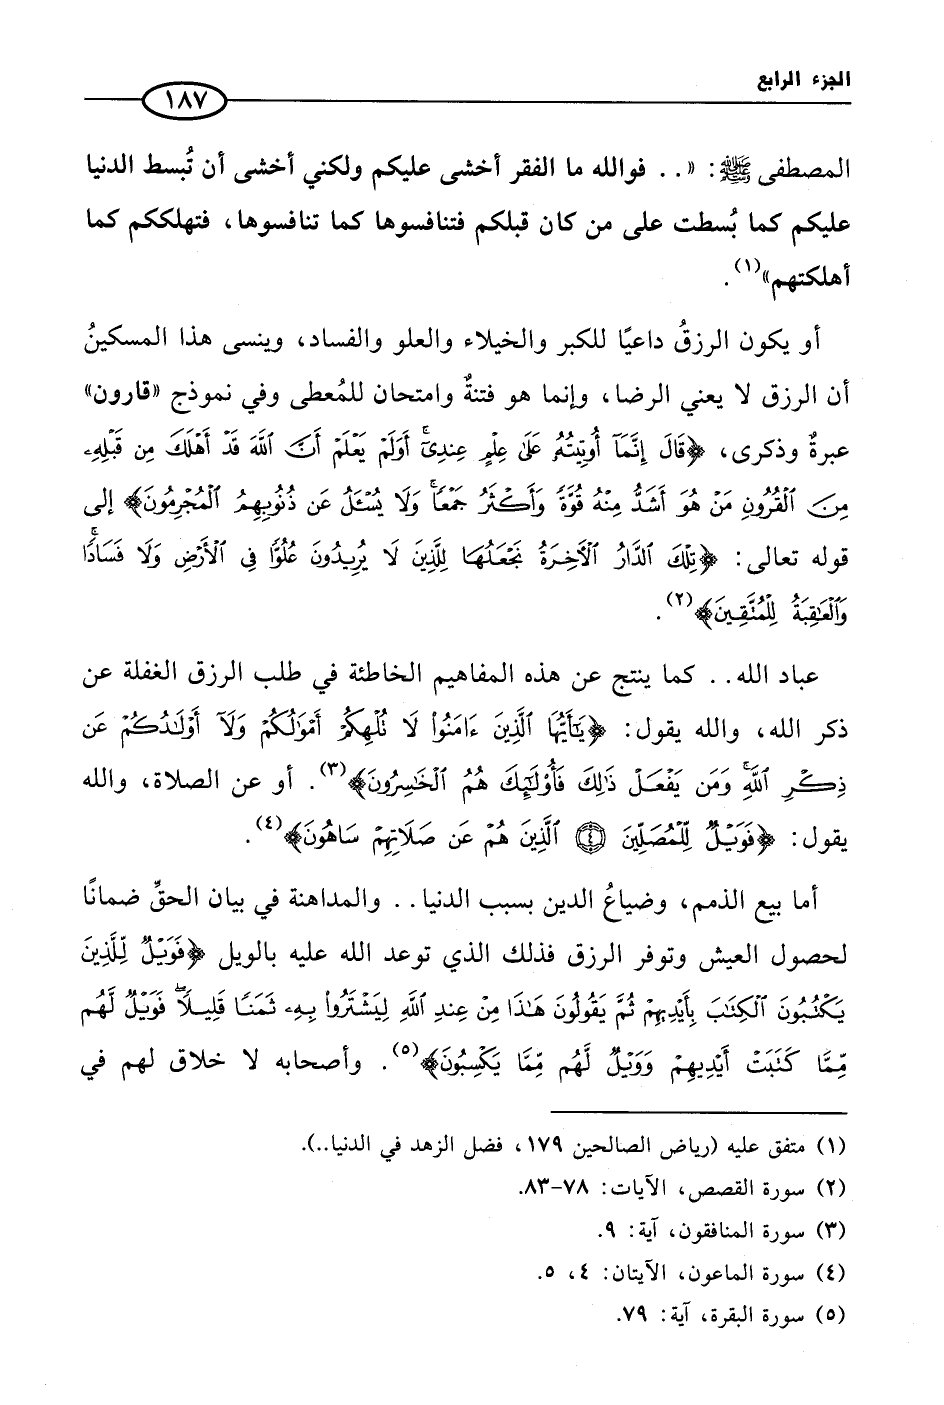 الجزء الرابع
١٨٧
المصطفى ﷺ: «.. فوالله ما الفقر أخشى عليكم ولكني أخشى أن تُبسط الدنيا
عليكم كما بُسطت على من كان قبلكم فتنافسوها كما تنافسوها، فتهلككم كما
أهلكتهم»(١).
أو يكون الرزقُ داعيًا للكبر والخيلاء والعلو والفساد، وينسى هذا المسكينُ
أن الرزق لا يعني الرضا، وإنما هو فتنةٌ وامتحان للمُعطى وفي نموذج «قارون»
عبرةٌ وذكرى، ﴿قَالَ إِنَّمَآ أُوتِيتُهُۥ عَلَىٰ عِلْمٍ عِندِىٓ ۚ أَوَلَمْ يَعْلَمْ أَنَّ ٱللَّهَ قَدْ أَهْلَكَ مِن قَبْلِهِۦ
مِنَ ٱلْقُرُونِ مَنْ هُوَ أَشَدُّ مِنْهُ قُوَّةً وَأَكْثَرُ جَمْعًا ۚ وَلَا يُسْـَٔلُ عَن ذُنُوبِهِمُ ٱلْمُجْرِمُونَ﴾ إلى
قوله تعالى: ﴿تِلْكَ ٱلدَّارُ ٱلْـَٔاخِرَةُ نَجْعَلُهَا لِلَّذِينَ لَا يُرِيدُونَ عُلُوًّا فِى ٱلْأَرْضِ وَلَا فَسَادًا ۚ
وَٱلْعَـٰقِبَةُ لِلْمُتَّقِينَ﴾(٢).
عباد الله.. كما ينتج عن هذه المفاهيم الخاطئة في طلب الرزق الغفلة عن
ذكر الله، والله يقول: ﴿يَـٰٓأَيُّهَا ٱلَّذِينَ ءَامَنُوا۟ لَا تُلْهِكُمْ أَمْوَٰلُكُمْ وَلَآ أَوْلَـٰدُكُمْ عَن
ذِكْرِ ٱللَّهِ ۚ وَمَن يَفْعَلْ ذَٰلِكَ فَأُو۟لَـٰٓئِكَ هُمُ ٱلْخَـٰسِرُونَ﴾(٣). أو عن الصلاة، والله
يقول: ﴿فَوَيْلٌ لِّلْمُصَلِّينَ ۝٤ ٱلَّذِينَ هُمْ عَن صَلَاتِهِمْ سَاهُونَ﴾(٤).
أما بيع الذمم، وضياعُ الدين بسبب الدنيا.. والمداهنة في بيان الحقِّ ضمانًا
لحصول العيش وتوفر الرزق فذلك الذي توعد الله عليه بالويل ﴿فَوَيْلٌ لِّلَّذِينَ
يَكْتُبُونَ ٱلْكِتَـٰبَ بِأَيْدِيهِمْ ثُمَّ يَقُولُونَ هَـٰذَا مِنْ عِندِ ٱللَّهِ لِيَشْتَرُوا۟ بِهِۦ ثَمَنًا قَلِيلًا ۖ فَوَيْلٌ لَّهُم
مِّمَّا كَتَبَتْ أَيْدِيهِمْ وَوَيْلٌ لَّهُم مِّمَّا يَكْسِبُونَ﴾(٥). وأصحابه لا خلاق لهم في
(١) متفق عليه (رياض الصالحين ١٧٩، فضل الزهد في الدنيا..).
(٢) سورة القصص، الآيات: ٧٨-٨٣.
(٣) سورة المنافقون، آية: ٩.
(٤) سورة الماعون، الآيتان: ٤، ٥.
(٥) سورة البقرة، آية: ٧٩.